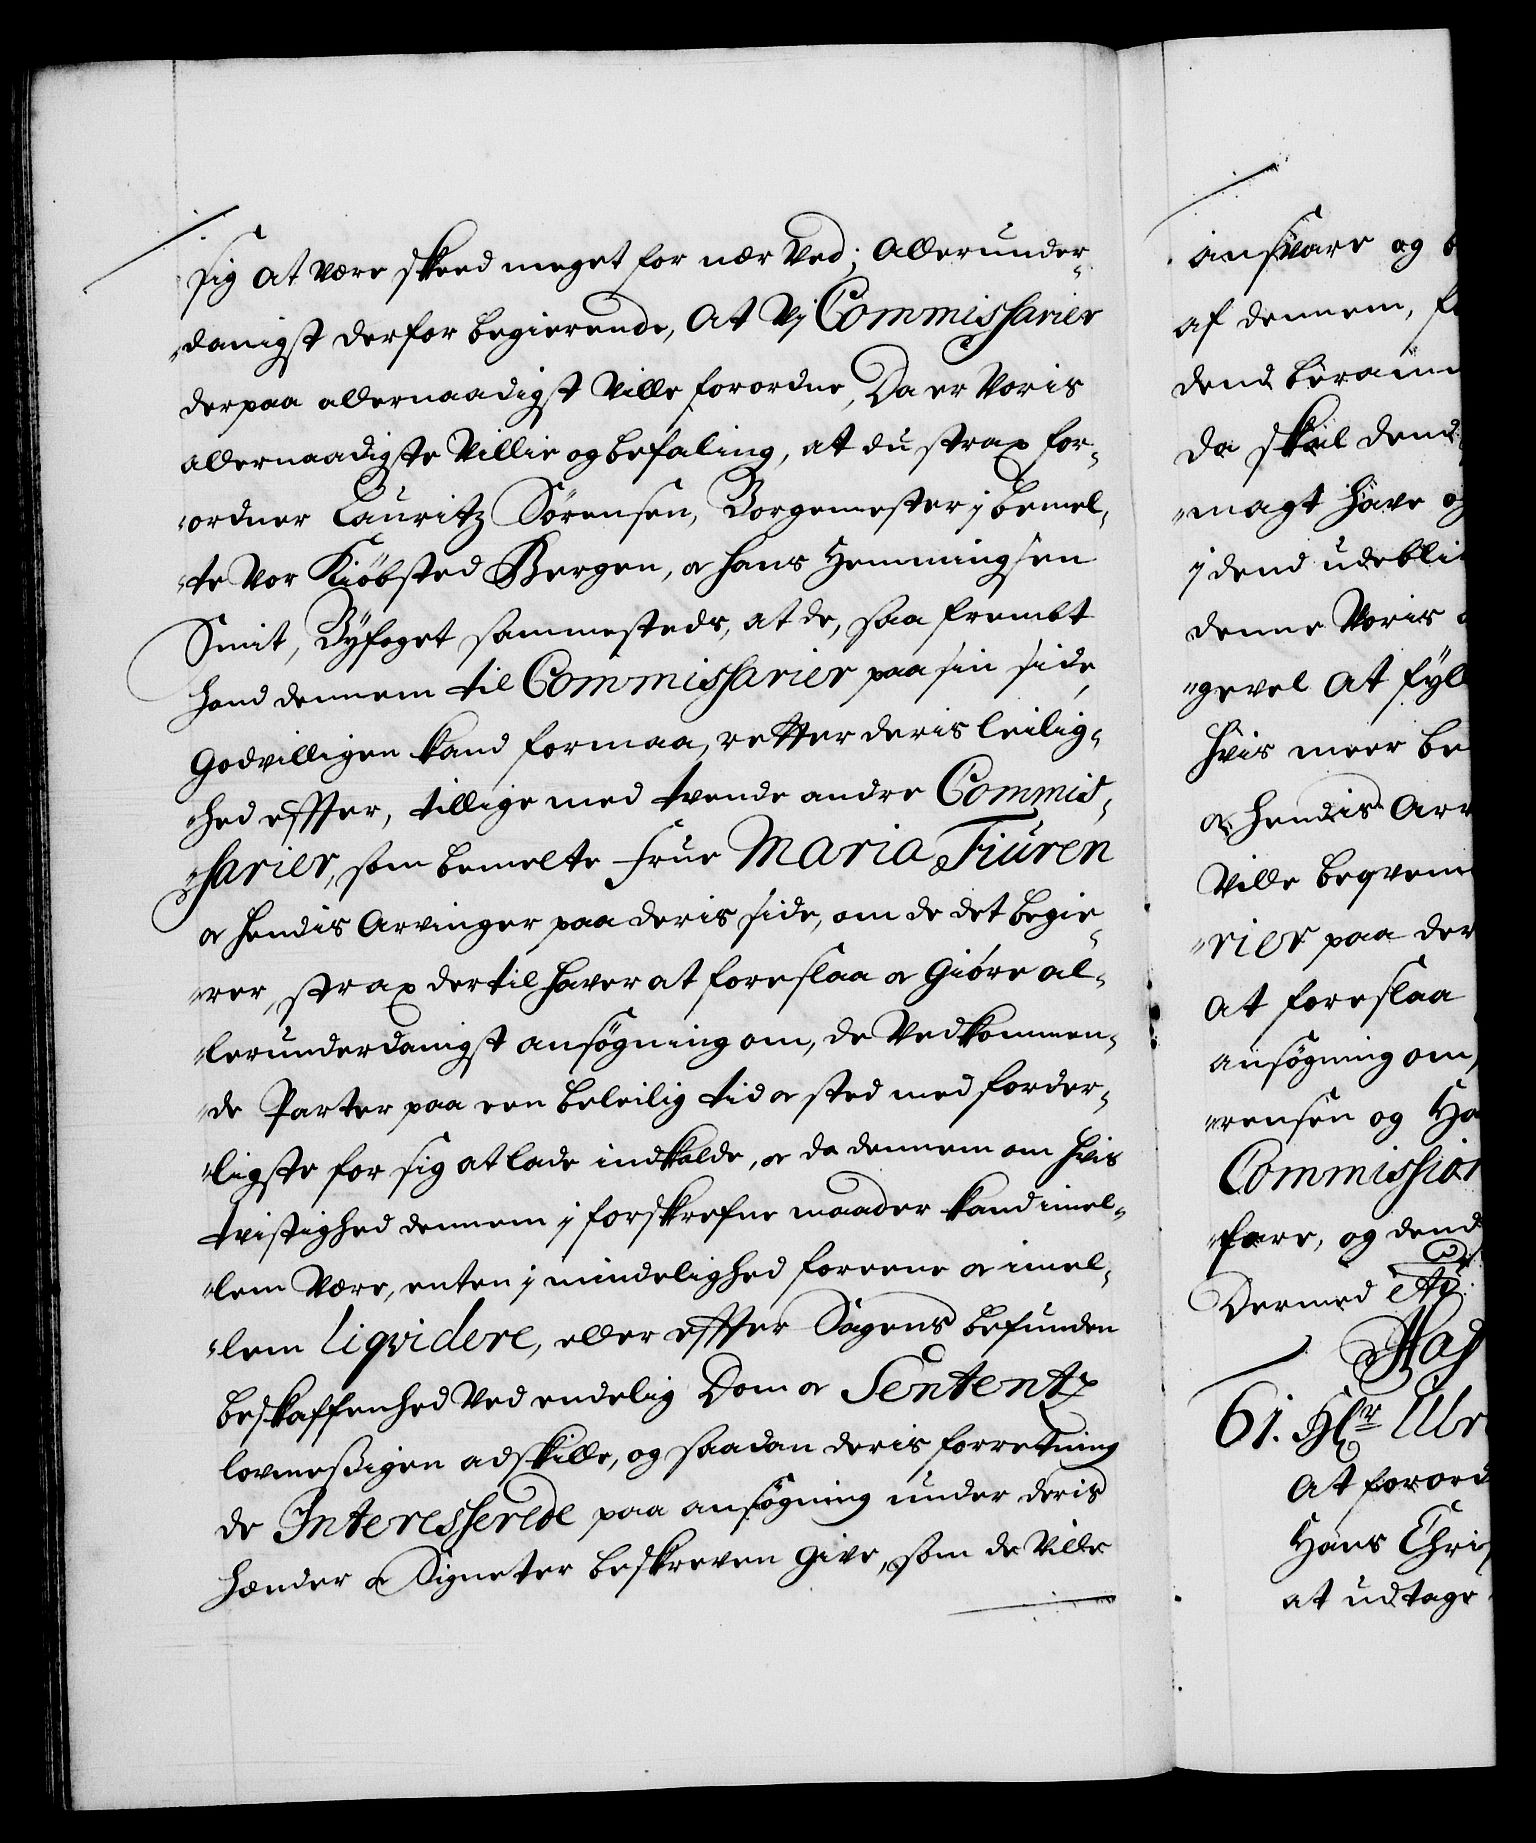 sig at være skeed meget for nær ved; Allerunder-
danigst derfor begierende, At Vj Commissarier
derpaa allernaadigst Ville forordne, Da er Voris
allernaadigste Villie og befaling, at du strax for-
ordner Lauritz Sørensen, Borgemester j bemel-
te Vor Kiøbsted Bergen, og Hans Hemmingsen
Smit, Byfoget sammesteds, at de, saa frembt
hand dennem til Commissarier paa sin side,
Godvilligen kand formaa, retter deris leilig-
hed effter, tillige med tvende andre Commis-
sarier, som bemelte Frue Maria Fiuren
og hendis Arvinger paa deris side, om de det begie-
rer, strax dertil haver at foreslaa og Giøre al-
lerunderdanigst ansøgning om, de Vedkommen-
de Parter paa een beleilig tid og sted med forder-
ligste for sig at lade indkalde, og da dennem om hvis
tvistighed dennem j forskrefne maader kand imel-
lem Være, enten j mindelighed foreene og imel-
lem liqvidere, eller effter Sagens befunden
beskaffenhed Ved endelig Dom og Sententz
lovmeßigen adskille, og saadan deris forretning
de Interesserede paa ansøgning under deris
hænder og Signeter beskreven Give, som de Ville
ansvare og
af dennem,
dend beramm
da skal dend
magt have og
j dend udebli
denne Voris
gevel At fyl
hvis meer be
og hendis Arv
Ville beqvem
rier paa der
At foreslaa
ansøgning om,
rensen og Ha
Commission
fare, og dend
Dermed
Haf
61. Hr Ulr
At forord
Hans Chri
at udtage